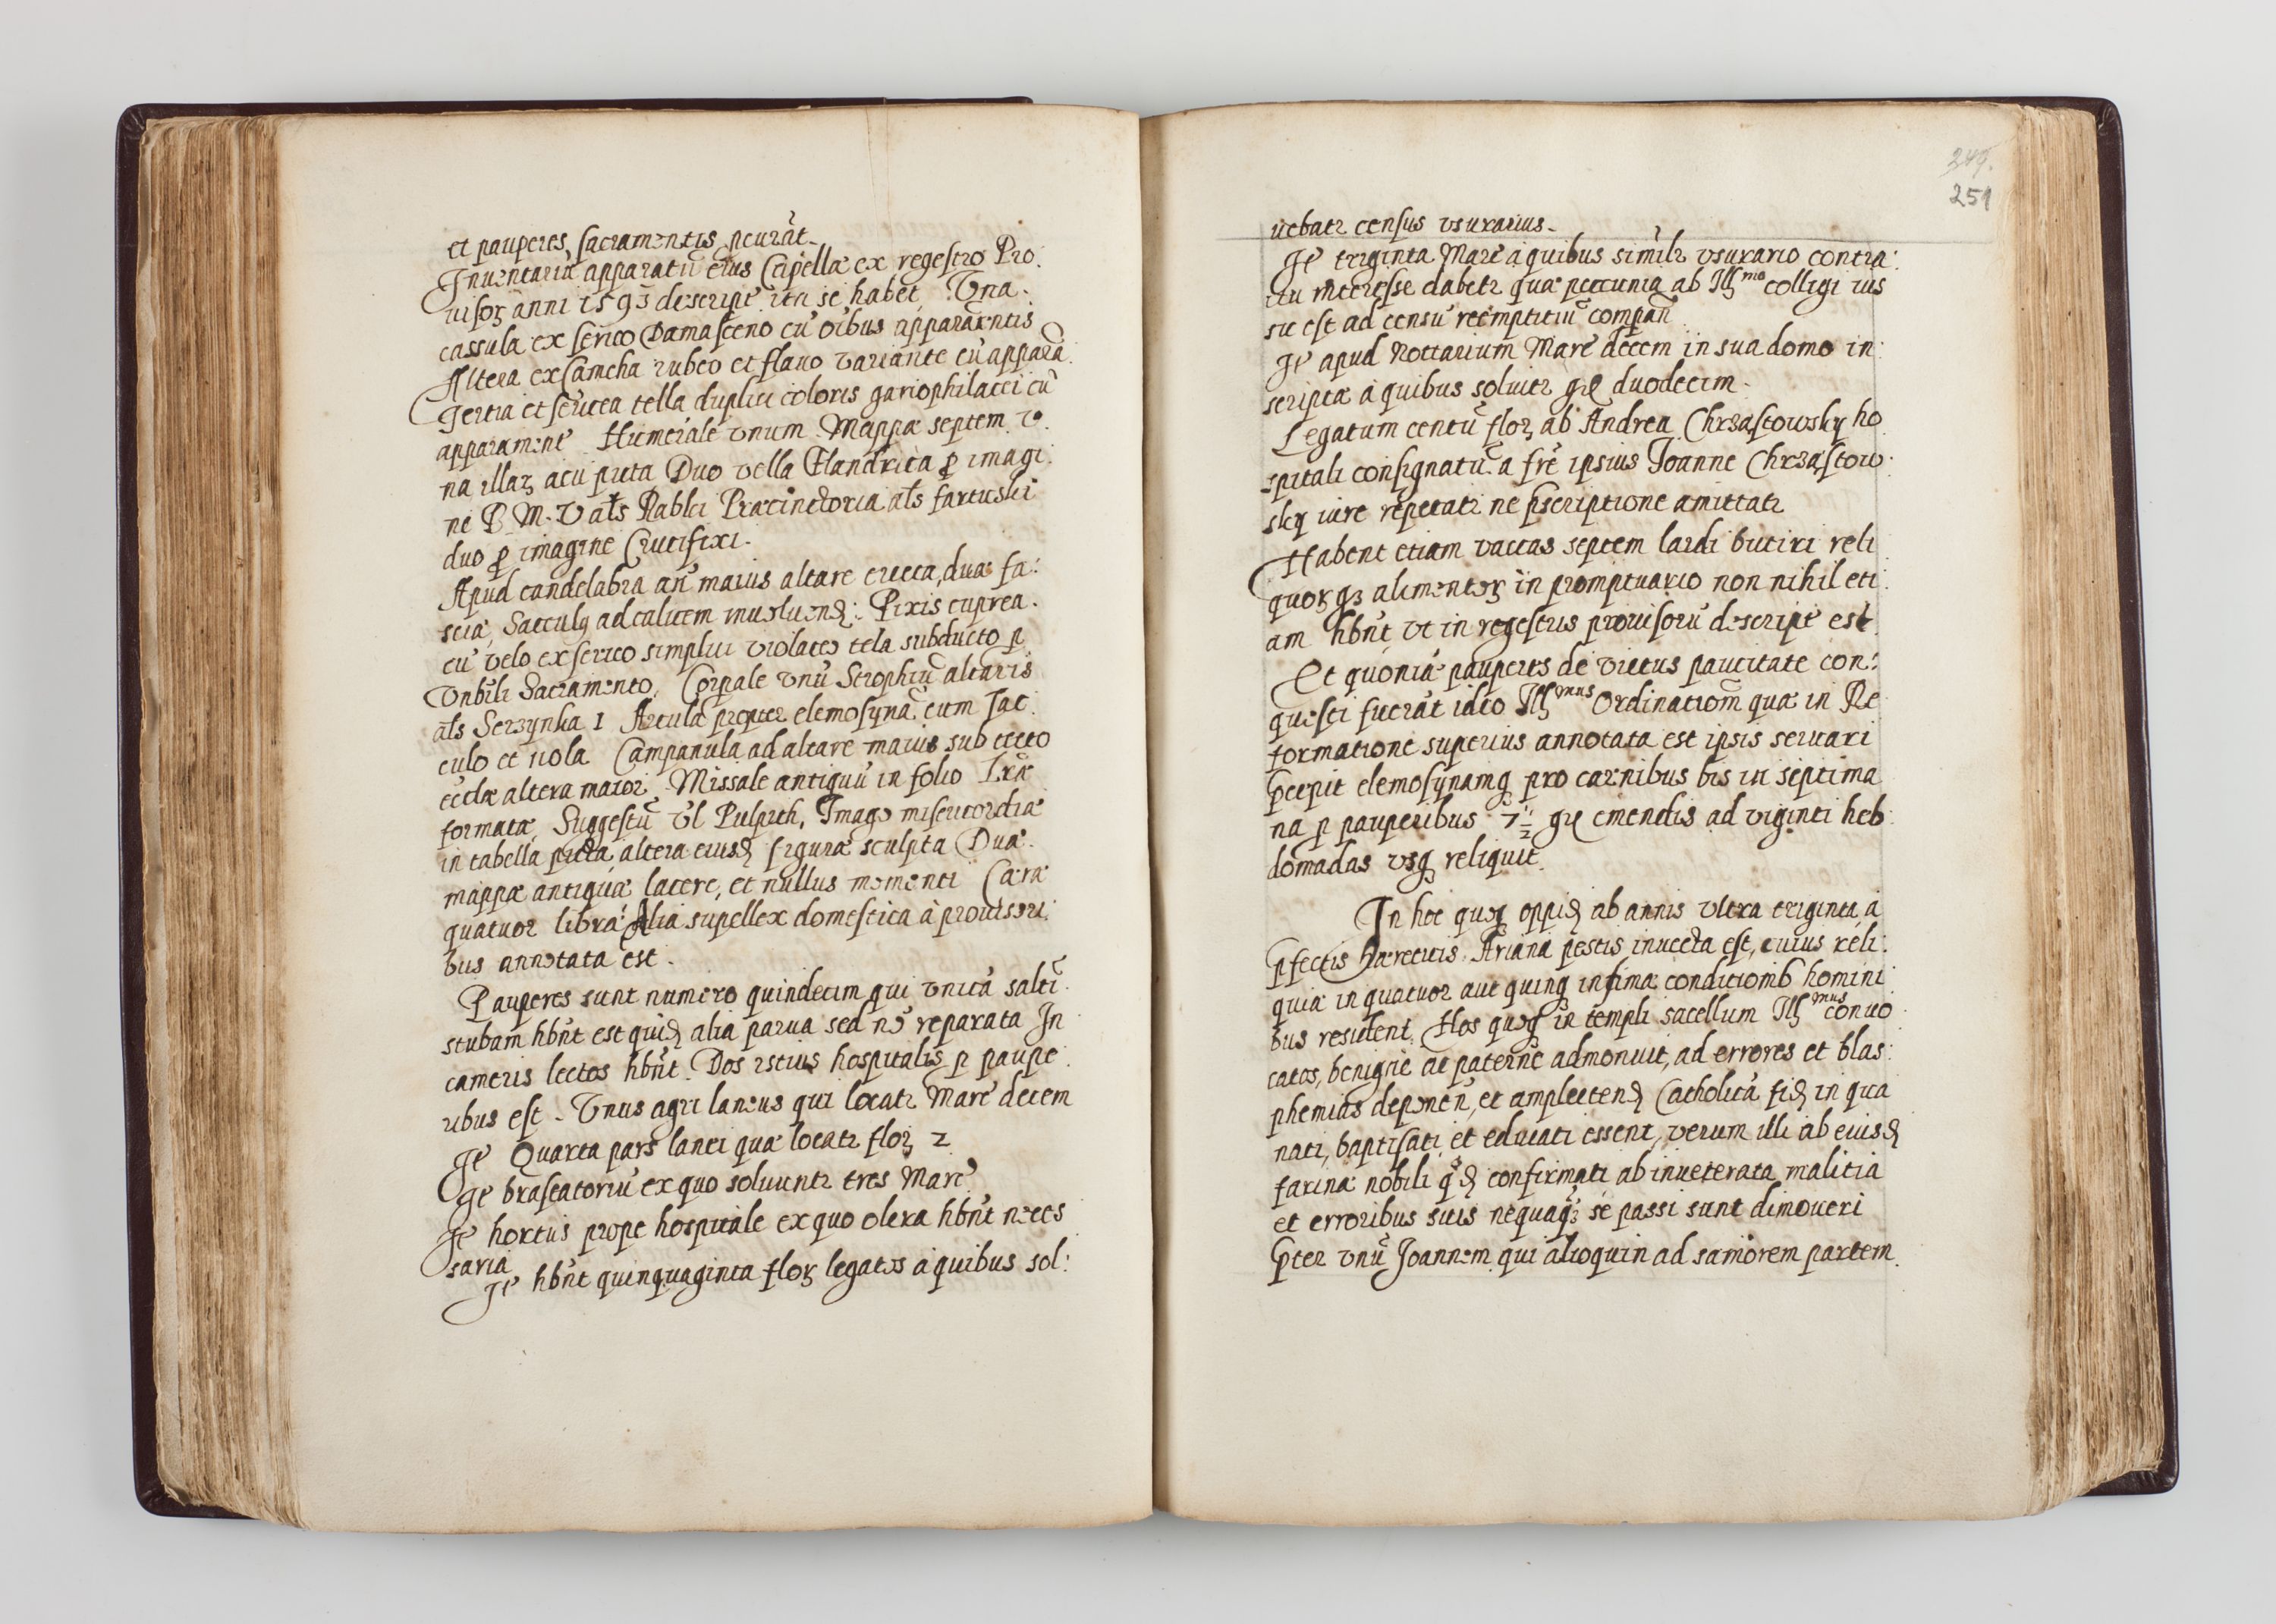 et pauperes, sacramentis ꝓcurāt.
Inuentariū apparatū eius Capellæ ex regestro Pro:
uisorꝝ anni 1593 descript̄ ita se habet. Vna
cassula ex serico Damasceno cū oībus apparamentis
Altera ex Camcha rubeo et flauo variante cū appara:
Tertia et sericea tella duplici coloris gariophilacei cū
apparament̄ Humerale vnum. Mappæ septem v:
na illarꝝ acu picta Duo vella Flandrica ꝓ imagi:
ne B. M. V al̄s Rabki Præcinctoria al̄s fartuski
duo ꝓ imagine Crucifixi.
Apud candelabra añ maius altare erecta, duæ fa:
sciæ, Sacculꝯ ad calicem inuoluend̄: Pixis cuprea.
cū velo ex serico simplici violaceo tela subducto ꝓ
Vnbīli Sacramento, Corpale vnū Strophiū altaris
al̄s Serzynka 1 Arcula propter elemosynā cum Sac:
culo et nola Campanula ad altare maius sub tecto
eccłæ altera maior. Missale antiquū in folio Iræ
formatæ, Suggestū vl Pulpith, Imago misericordiæ
in tabella picta, altera eiusd̄ figuræ sculpta Duæ
mappæ antiquæ laceræ, et nullus momenti Cæræ
quatuor libræ Alia supellex domestica à prouisori:
bus annotata est.
Pauperes sunt numero quindecim qui vnicā saltī
stubam hb̄nt est quid̄ alia parua sed nō reparata In
cameris lectos hb̄nt. Dos istius hospitalis ꝑ paupe:
ribus est. Vnus agri laneus qui locatr Marc̄ decem
It̄ Quarta pars lanei quæ locatr florꝝ 2
It̄ braseatoriū ex quo soluuntr tres Marc̄
It̄ hortus prope hospitale ex quo olera hb̄nt neces
saria
It̄ hb̄nt quinquaginta florꝝ legatos à quibus sol:
249.
251
uebatr census vsurarius.
It̄ triginta Marc̄ à quibus simīlr vsurario contra:
ctu interesse dabetr quæ peccunia ab Illmo colligi ius
su est ad censū reemptitiū compañ
It̄ apud Nottarium Marc̄ decem in sua domo in:
scriptæ à quibus soluitr gꝝ duodecim.
Legatum centū florꝝ ab Andrea Chrzastowsky ho
spitali consignatū a frē ipsius Joanne Chrzastow:
sky iure repetatr ne pscriptione amittatr
Habent etiam vaccas septem lardi butiri reli
quorꝝ qꝫ alimentorꝝ in promptuario non nihil eti
am hb̄nt, vt in regestris prouisorū descript̄ est.
Et quoniā pauperes de victus paucitate con:
questi fuerāt ideo Illmus Ordinationem quæ in Re
formatione superius annotata est ipsis seruari
pcepit elemosynamqꝫ pro carnibus bis in septima
na ꝑ pauperibus 7 1/2 gꝝ emendis ad viginti heb
domadas vsqꝫ reliquit.
In hoc quoqꝫ oppid̄ ab annis vltra triginta, à
pfectis hæreticis Ariana pestis inuecta est, cuius reli:
quiæ in quatuor aut quinqꝫ infimæ conditionib̄ homini
bus resident. Hos quoqꝫ in templi sacellum Illmus conuo
catos, benignè ac paternè admonuit, ad errores et blas:
phemias deponeñ, et amplectend̄ Catholicā fid̄ in qua
nati, baptisati et educati essent, verum illi ab eiusd̄
farinæ nobili qd̄ confirmati ab inueterata malitia
et erroribus suis nequaqꝫ se passi sunt dimoueri
pter vnū Joannem qui alioquin ad saniorem partem